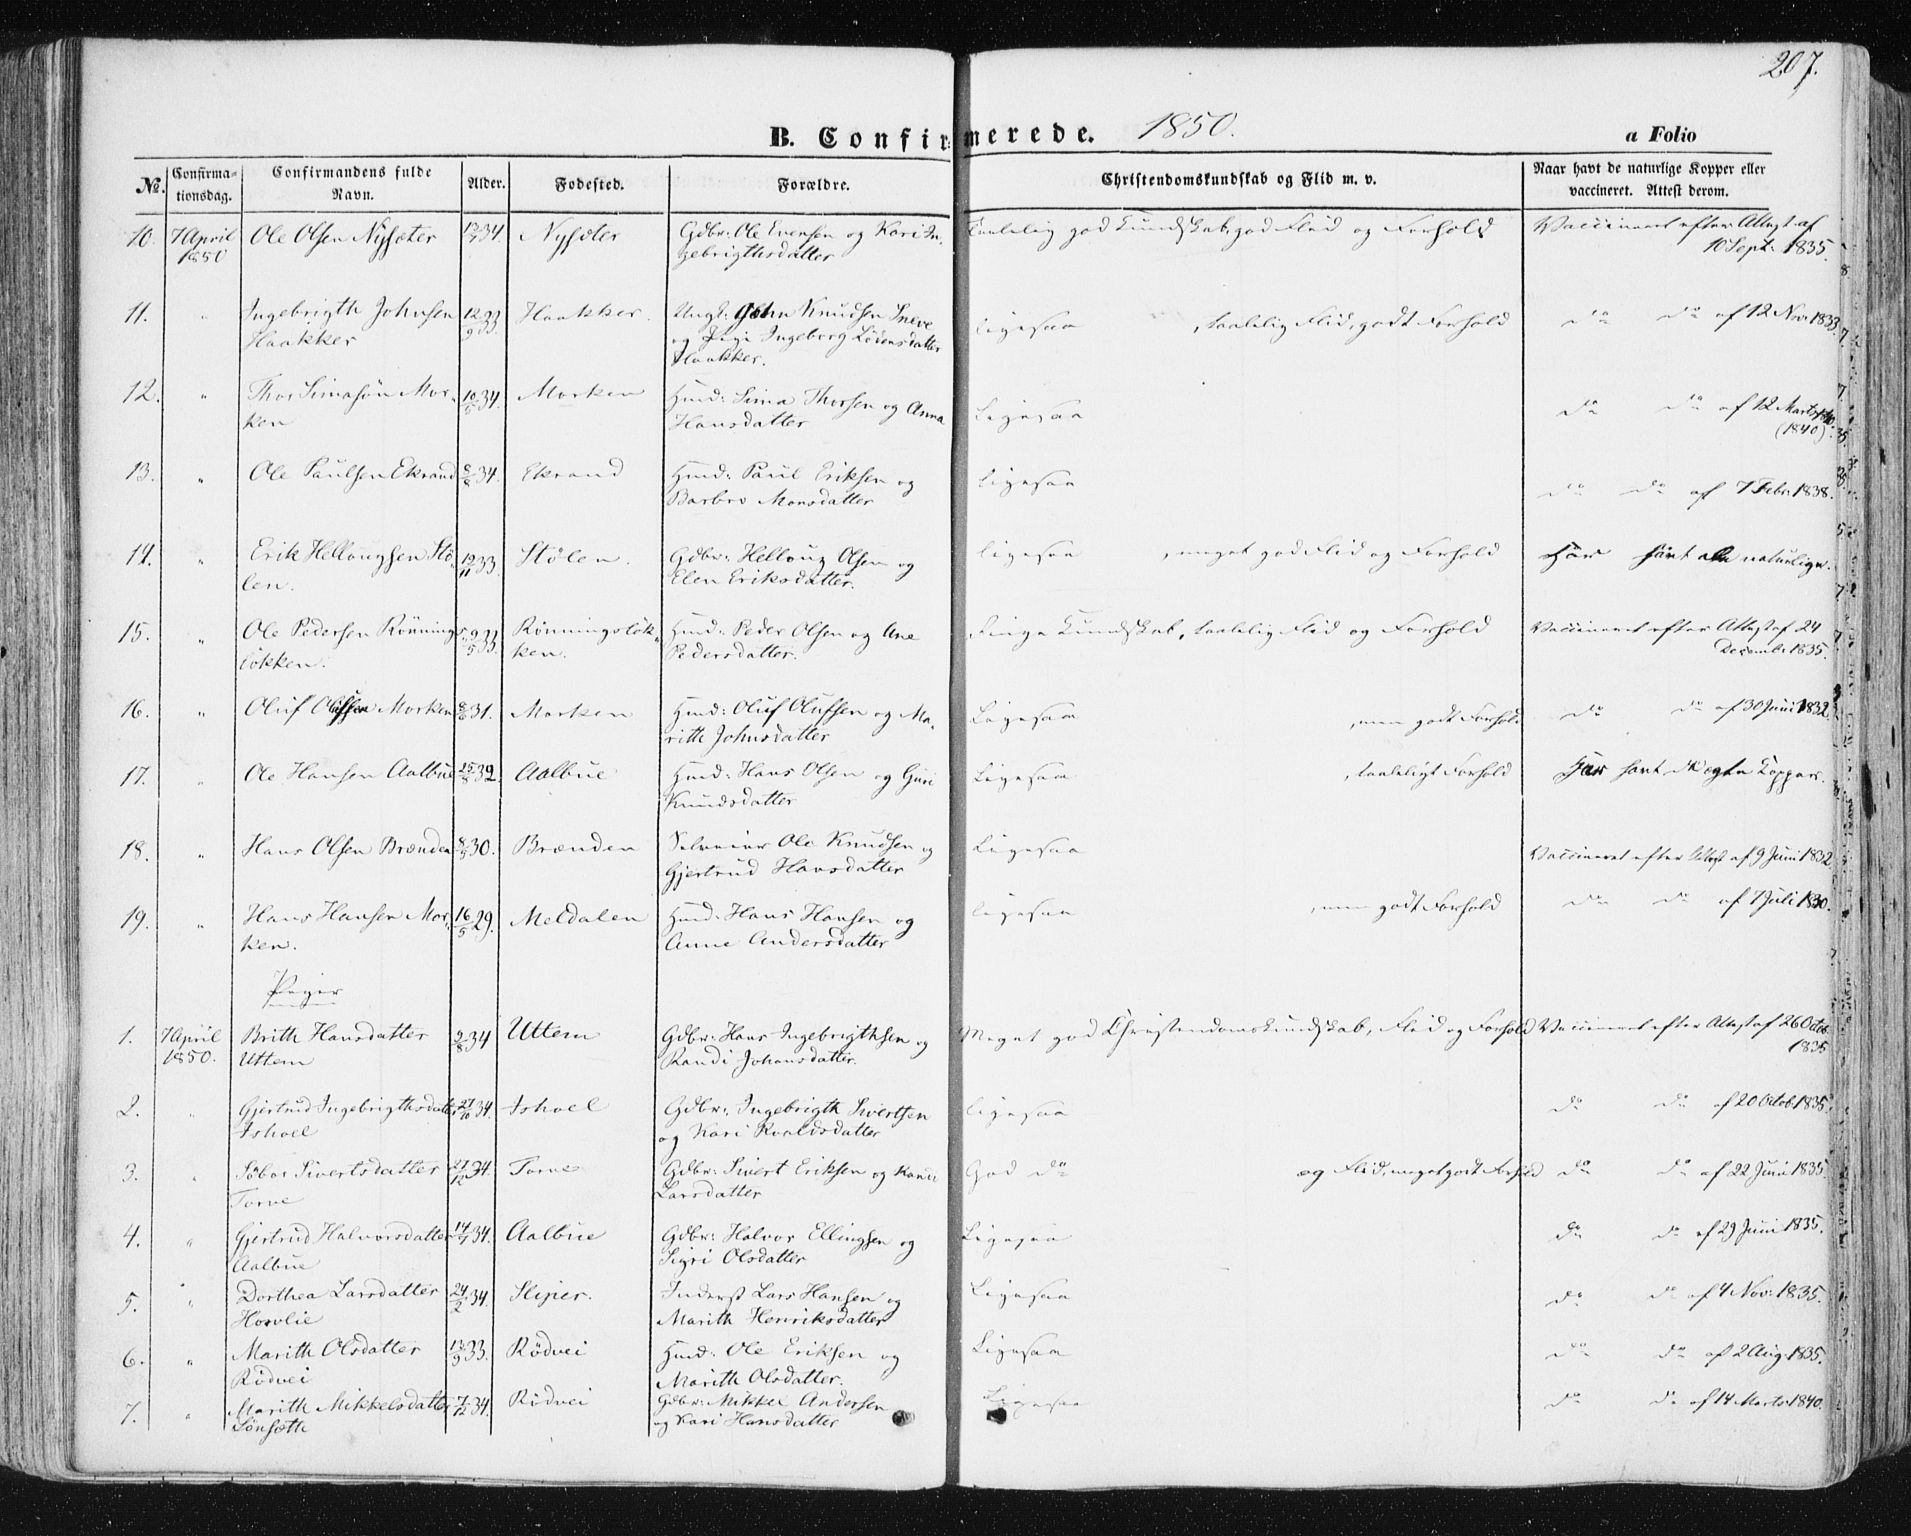 207.
B. Confirmerede. 1850.
a Folio
No. Confirmationsdag. Confirmandens fulde Navn. Alder. Fødested. Forældre. Christendomskundskab og Flid m. v. Naar havt de naturlige Kopper eller vaccineret. Attest derom.
10. 7 April Ole Olsen Nysæter 34. Nysæter Gdbr: Ole Evensen og Kari In- Taalelig god Kundskab, god Flid og Forhold Vaccineret efter Attest af
1850 gebrigthsdatter 10 Sept: 1835.
11. " Ingebrigth Johnsen 12/9 33 Haakker. Ungk: John Knudsen Sneve Ligesaa , taalelig Flid, godt Forhold do do af 12 Nov: 1833.
Haakker og Pige Ingeborg Lödensdatter
Haakker.
12. " Thor Simasön Mor- 10/5 34. Morken Hmd: Sima Thorsen og Anna Ligesaa do do af 12 Marts
ken Hansdatter (1840)
13. " Ole Paulsen Ekrand 34. Ekrand Hmd: Paul Eriksen og Ligesaa
Barbro Monsdatter do do af 7 Febr: 1838.
14. " Erik Hellougsen Stö- 33. Stölen. Gdbr: Helloug Olsen og Ligesaa , meget god Flid og Forhold Har havt de naturlige.
len. Elen Eriksdatter.
15. " Ole Pedersen Rönnings- 9/5 33. Rönningslök- Hmd: Peder Olsen og Ane Ringe Kundskab, taalelig Flid og Forhold Vaccineret efter Attest af 24
lökken. ken. Pedersdatter. Decembr 1835.
16. " Oluf Olufsen Morken 31. Morken Hmd: Oluf Olufsen og Ma- Ligesaa , men godt Forhold do do af 30 Juni 1832
rith Johnsdatter
17. " Ole Hansen Aalbue 15/8 32. Aalbue Hmd: Hans Olsen og Guri Ligesaa , taaleligt Forhold Har havt de ægte Kopper.
Knudsdatter
18. " Hans Olsen Brænden 30. Brænden Selveier Ole Knudsen og Ligesaa
Gjertrud Hansdatter Vaccineret efter Attest af 9 Juni 1832
19. " Hans Hansen Mor- 16/5 29. Meldalen Hmd: Hans Hansen og Ligesaa , men godt Forhold do do af 7 Juli 1830.
ken. Anne Andersdatter
Piger
1. 7 April Britth Hansdatter 2/8 34 Uttem Gdbr: Hans Ingebrigthsen og Meget god Christendomskundskab, Flid og Forhold Vaccineret efter Attest af 26 Octob.
1850. Uttem Randi Johansdatter. 1835
2. " Gjertrud Ingebrigthsdatter 34. Ishoel Gdbr: Ingebrigth Sivertsen Ligesaa do do af 20 Octob. 1835.
Ishoel og Kari Roaldsdatter
3. " Söbor Sivertsdatter 27/12 34. Torve Gdbr: Sivert Eriksen og Randi God do og Flid, meget godt Forhold do do af 22 Juni 1835.
Torve Larsdatter
4. " Gjertrud Halvorsdatter 34. Aalbue Gdbr: Halvor Ellingsen og Ligesaa do do af 29 Juni 1835.
Aalbue Sigri Olsdatter
5. " Dorthea Larsdatter 24/2 34. Sliper. Inderst Lars Hansen og Ligesaa do do af 4 Nov: 1835.
Hovlie Marith Henriksdatter
6. " Marith Olsdatter 13/9 33. Rödvei Hmd: Ole Eriksen og Ligesaa do do af 2 Aug: 1835.
Rödvei Marith Olsdatter.
7. " Marith Mikkelsdatter 7/12 34. Rödvei Gdbr: Mikkel Andersen Ligesaa do do af 14 Marts 1840.
Lönsæth og Kari Hansdatter